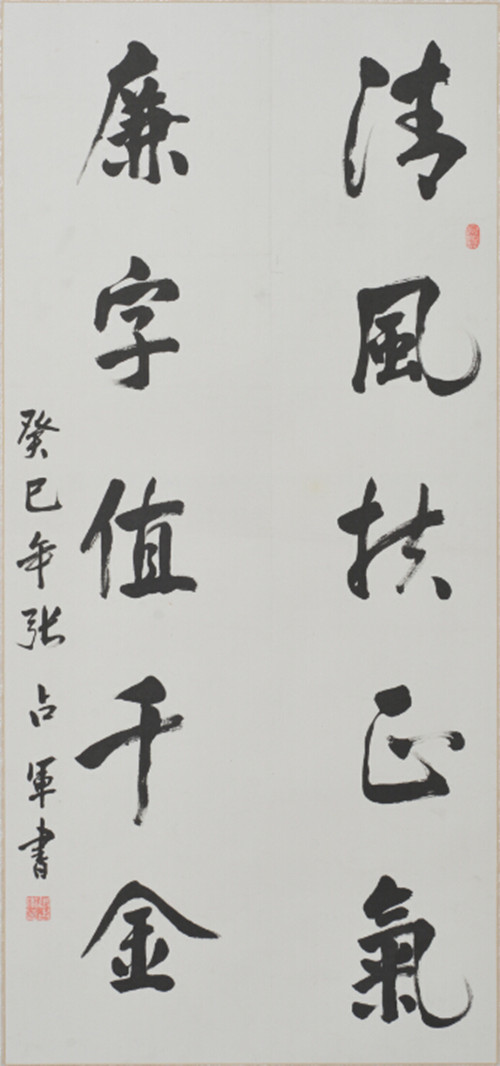 清風扶正氣
廉字值千金
癸巳年张占軍書